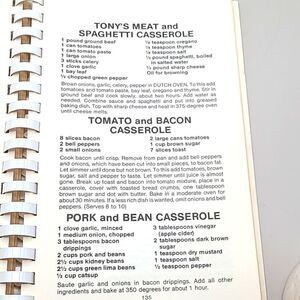 TONY'S MEAT and
SPAGHETTI CASSEROLE
1 pound ground beef ½ teaspoon oregano
1 can tomatoes ½ teaspoon thyme
1 can tomato paste ½ teaspoon salt
1 large onion ½ pound spaghetti, boiled
3 sticks celery in salted water
1 clove garlic ½ pound sharp cheese
1 bay leaf Oil for browning
½ chopped green pepper
Brown onions, garlic, celery, pepper in DUTCH OVEN. To this add
tomatoes and tomato paste, bay leaf, oregano and thyme. Stir in
ground beef and cook slowly, about two hours. Add water as
needed. Combine sauce and spaghetti and put into greased
baking dish. Top with sharp cheese and heat in 375 degree oven
until cheese melts.
TOMATO and BACON
CASSEROLE
8 slices bacon 2 large cans tomatoes
2 bell peppers 1 cup brown sugar
2 small onions 7 slices toast
Cook bacon until crisp. Remove from pan and add bell peppers
and onions, which have been cut into small pieces, to bacon fat.
Let simmer until done but not brown. To this add tomatoes, brown
sugar, salt and pepper to taste. Let simmer until juice is almost
gone. Break up toast and bacon into tomato mixture, place in a
casserole, cover with toasted bread crumbs, one tablespoon
brown sugar and dot with butter. Bake in a moderate oven for
about 30 minutes. If a less rich dish is wanted, omit bell peppers
and onions. (Serves 8 to 10)
PORK and BEAN CASSEROLE
1 clove garlic, minced 3 tablespoons vinegar
1 medium onion, chopped (apple cider)
3 tablespoons bacon 2 tablespoons dark brown
drippings sugar
2 cups pork and beans 1 teaspoon dry mustard
2½ cups kidney beans 1 teaspoon salt
2½ cups green lima beans ½ teaspoon pepper
½ cup catsup
Saute garlic and onions in bacon drippings. Add all other
ingredients and bake at 350 degrees for about 1 hour.
135